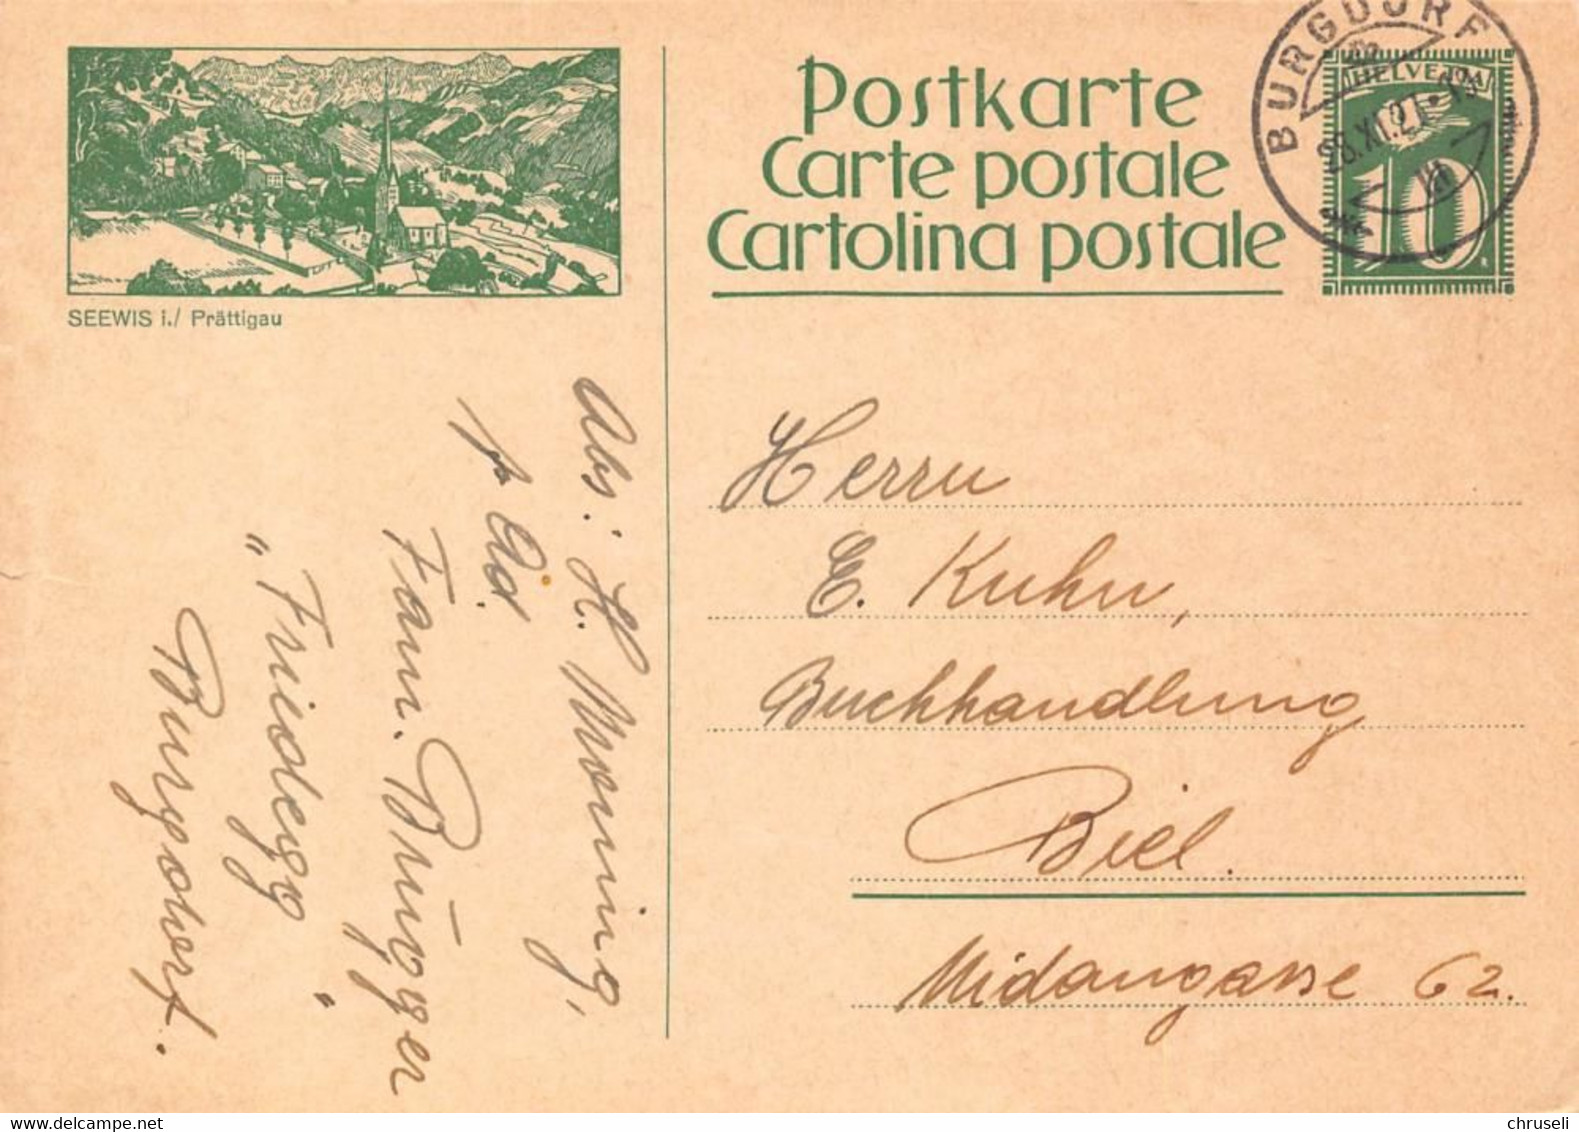 SEEWIS i./ Prättigau
Postkarte
Carte postale
Cartolina postale
BURGDORF
28.XI.27
HELVETIA
10
Herrn
E. Kuhn,
Buchhandlung
Biel.
Nidaugasse 62.
Abs: H. Morning,
Fam. Brügger
"Friedegg"
Burgdorf.
chruseli